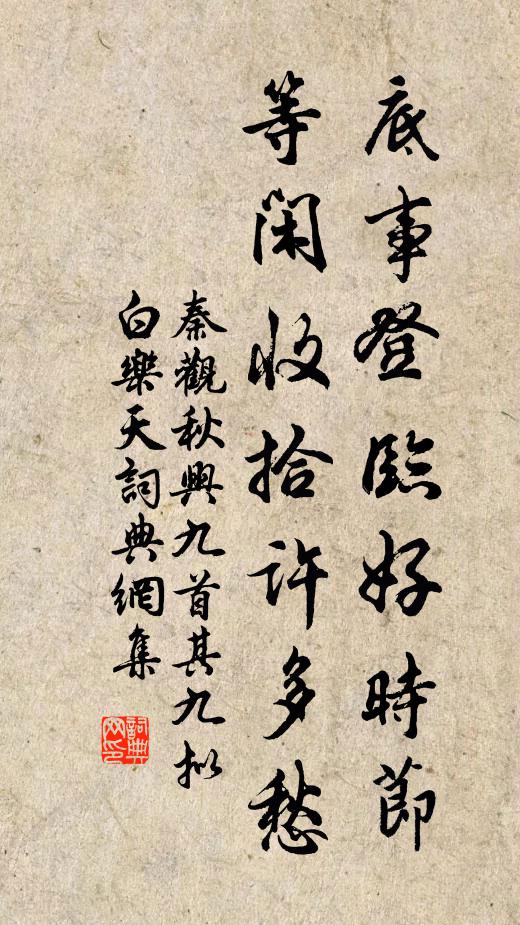 底事登臨好時節
等閑收拾許多愁
秦觀秋興九首其九拟
白樂天詞典網集
詞典网印